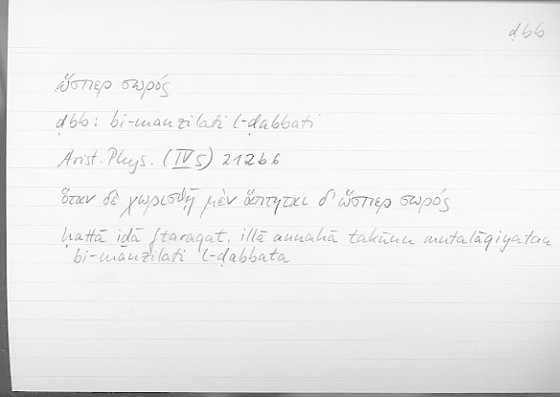 ḍbb
ὥσπερ σωρός
ḍbb: bi-manzilati l-ḍabbati
Arist. Phys. (IV 5) 212b6
ὅταν δὲ χωρισθῇ μὲν ἅπτηται δ' ὥσπερ σωρός
ḥattā iḏā ftaraqat, illā annahā takūnu mutalāqiyatan
bi-manzilati l-ḍabbata